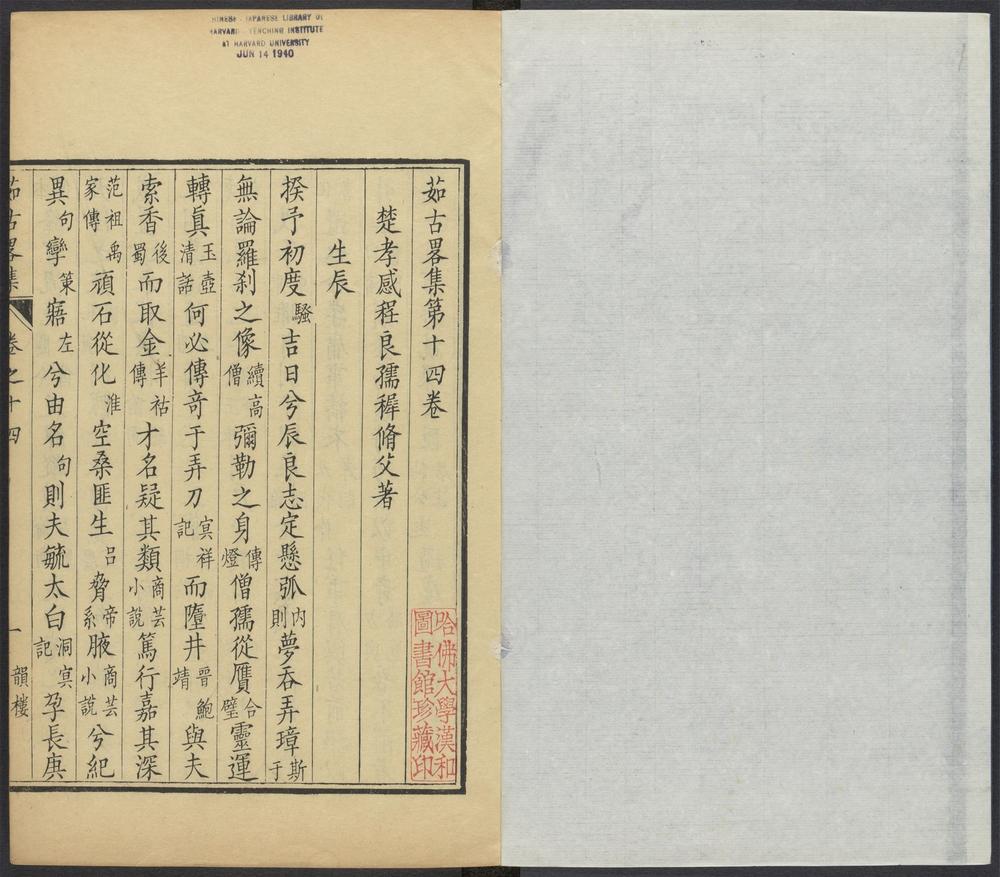 CHINESE JAPANESE LIBRARY OF
HARVARD YENCHING INSTITUTE
AT HARVARD UNIVERSITY
JUN 14 1940
茹古畧集第十四卷
楚孝感程良孺穉脩父著
生辰
揆予初度騷吉日兮辰良志定懸弧內則夢吞弄璋斯于
無論羅刹之像續高僧彌勒之身傳燈僧孺從贋合璧靈運
轉真玉壺清話何必傳奇于弄刀冥祥記而墮井晉鮑靖與夫
索香後蜀而取金羊祜傳才名疑其類商芸小說篤行嘉其深
范祖禹家傳頑石從化淮空桑匪生呂脅帝系腋商芸小說兮紀
異句孿策寤左兮由名句則夫毓太白洞冥記孕長庚
茹古畧集
卷之十四
一
韻樓
哈佛大學漢和
圖書館珍藏印